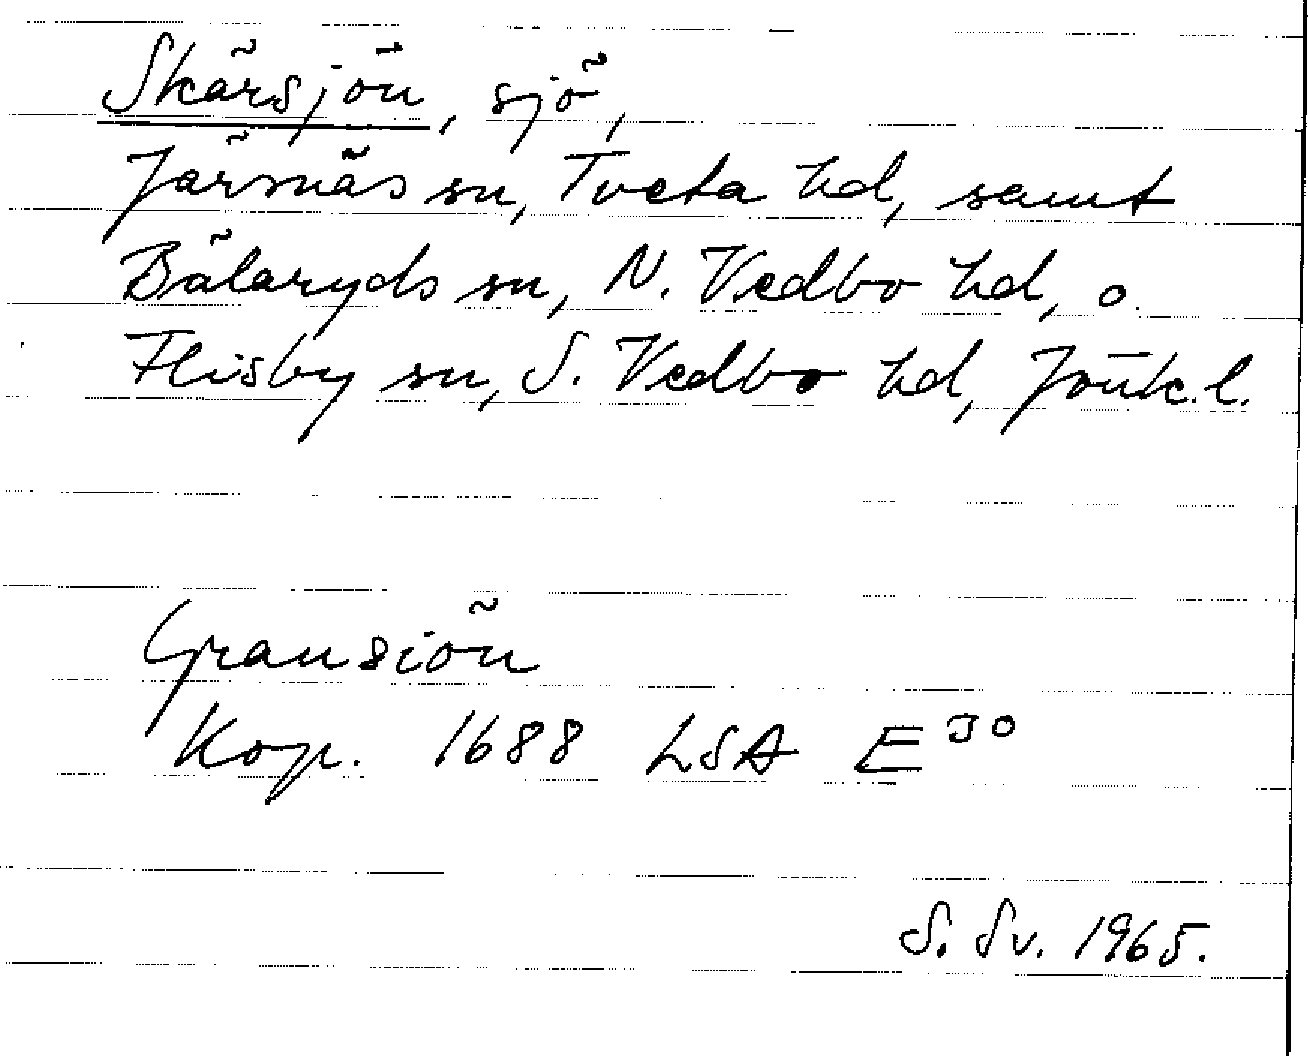 Skärsjön, sjö,
Järsnäs sn, Tveta hd, samt
Bälaryds sn, N. Vedbo hd, o.
Flisby sn, S. Vedbo hd, Jönk.l.
Gransiön
Kop. 1688 LSA E 30
S. Sv. 1965.